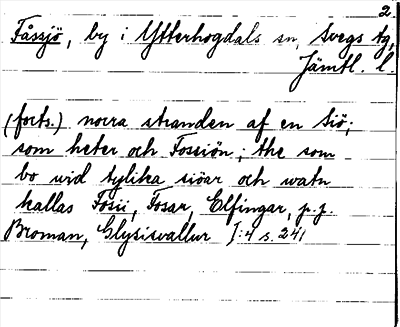 2.
Fåssjö, by i Ytterhogdals sn, Svegs tg,
Jämtl. l.
(forts.) norra stranden af en Siö;
som heter och Fossiön; the som
bo wid tylika siöar och watn
kallas Fosii, Fosar, Elfingar, p.p.
Broman, Glysisvallur I:4 s. 241